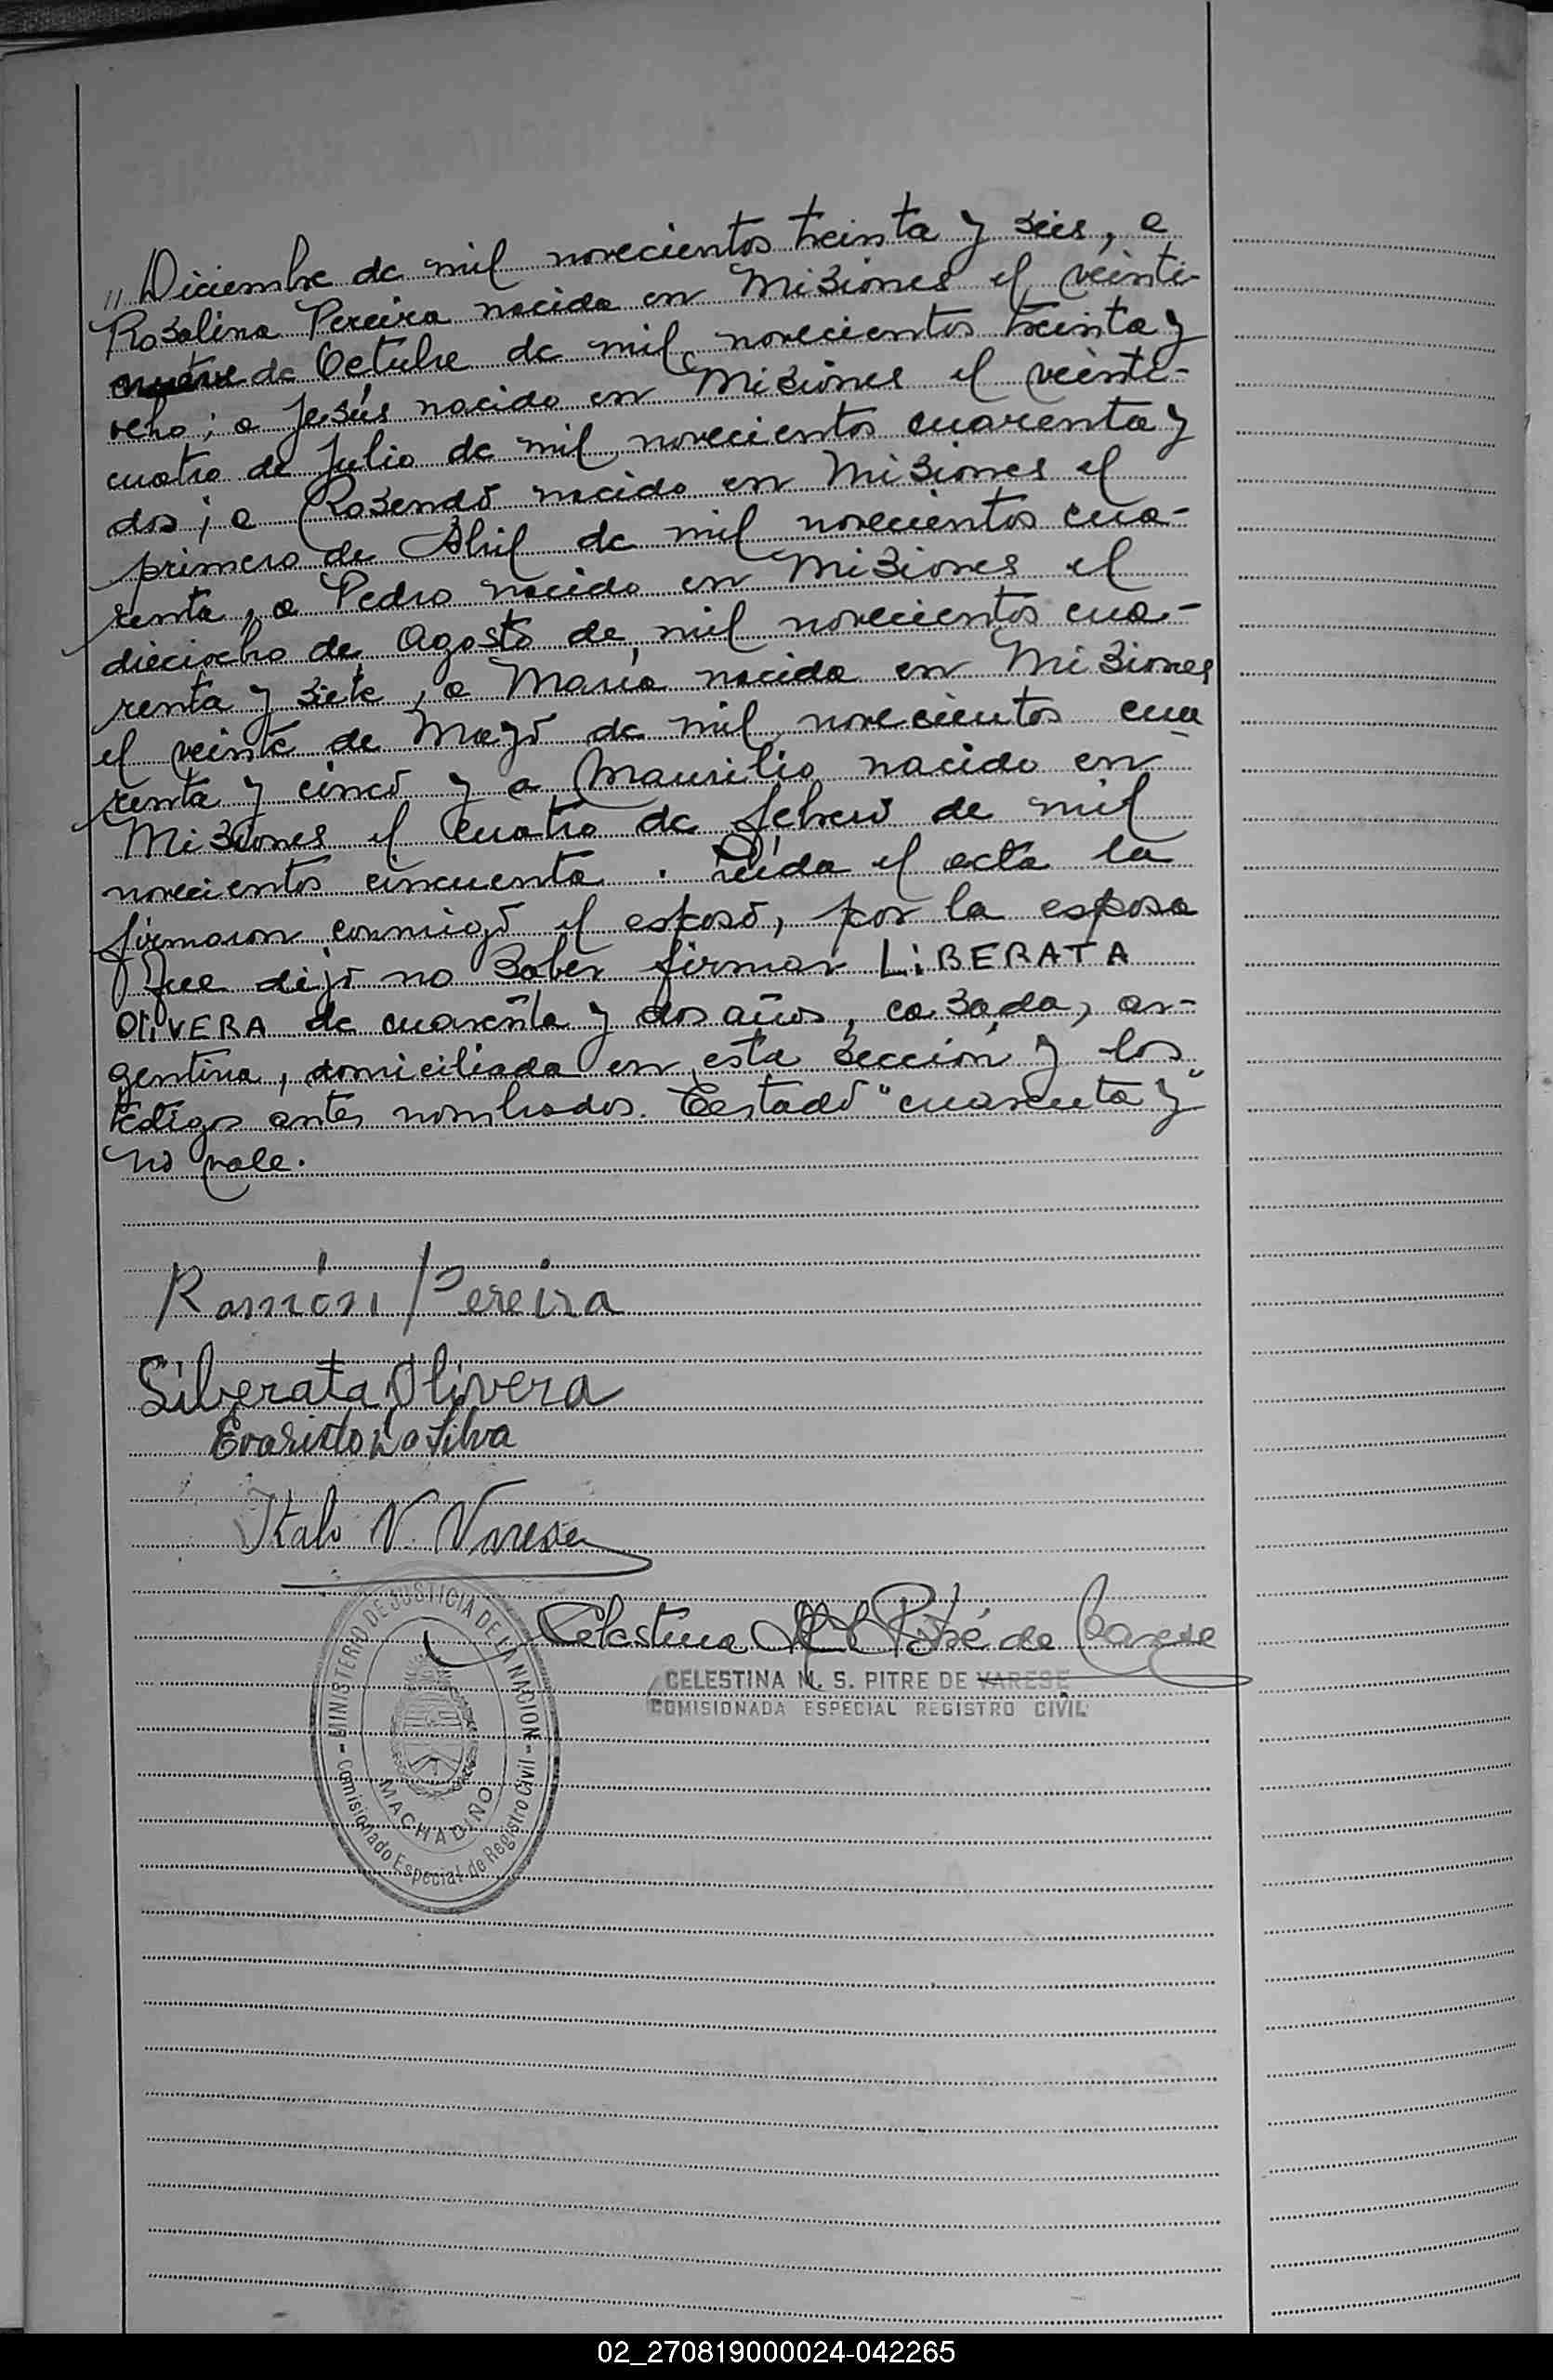 " Diciembre de mil novecientos treinta y seis, a
Rosalina Pereira nacida en Misiones el veinti-
nueve de Octubre de mil novecientos treinta y
ocho; a Jesús nacido en Misiones el veinti-
cuatro de Julio de mil novecientos cuarenta y
dos; a Rosendo nacido en Misiones el
primero de Abril de mil novecientos cua-
renta, a Pedro nacido en Misiones el
dieciocho de Agosto de mil novecientos cua-
renta y siete, a María nacida en Misiones
el veinte de Mayo de mil novecientos cua
renta y cinco y a Maurilio nacido en
Misiones el cuatro de febrero de mil
novecientos cincuenta. Leída el acta la
firmaron conmigo el esposo, por la esposa
que dijo no saber firmar LiBERATA
OLiVERA de cuarenta y dos años, casada, ar-
gentina, domiciliada en esta sección y los
testigos antes nombrados. Testado "cuarenta y"
no vale.
Ramón Pereira
Liberata Olivera
Evaristo Da Silva
Italo V. Varese
Celestina M S Pitré de Varese
CELESTINA M. S. PITRE DE VARESE
COMISIONADA ESPECIAL REGISTRO CIVIL
- MINISTERIO DE JUSTICIA DE LA NACION -
MACHADIÑO
Comisionado Especial de Registro Civil
02_270819000024-042265